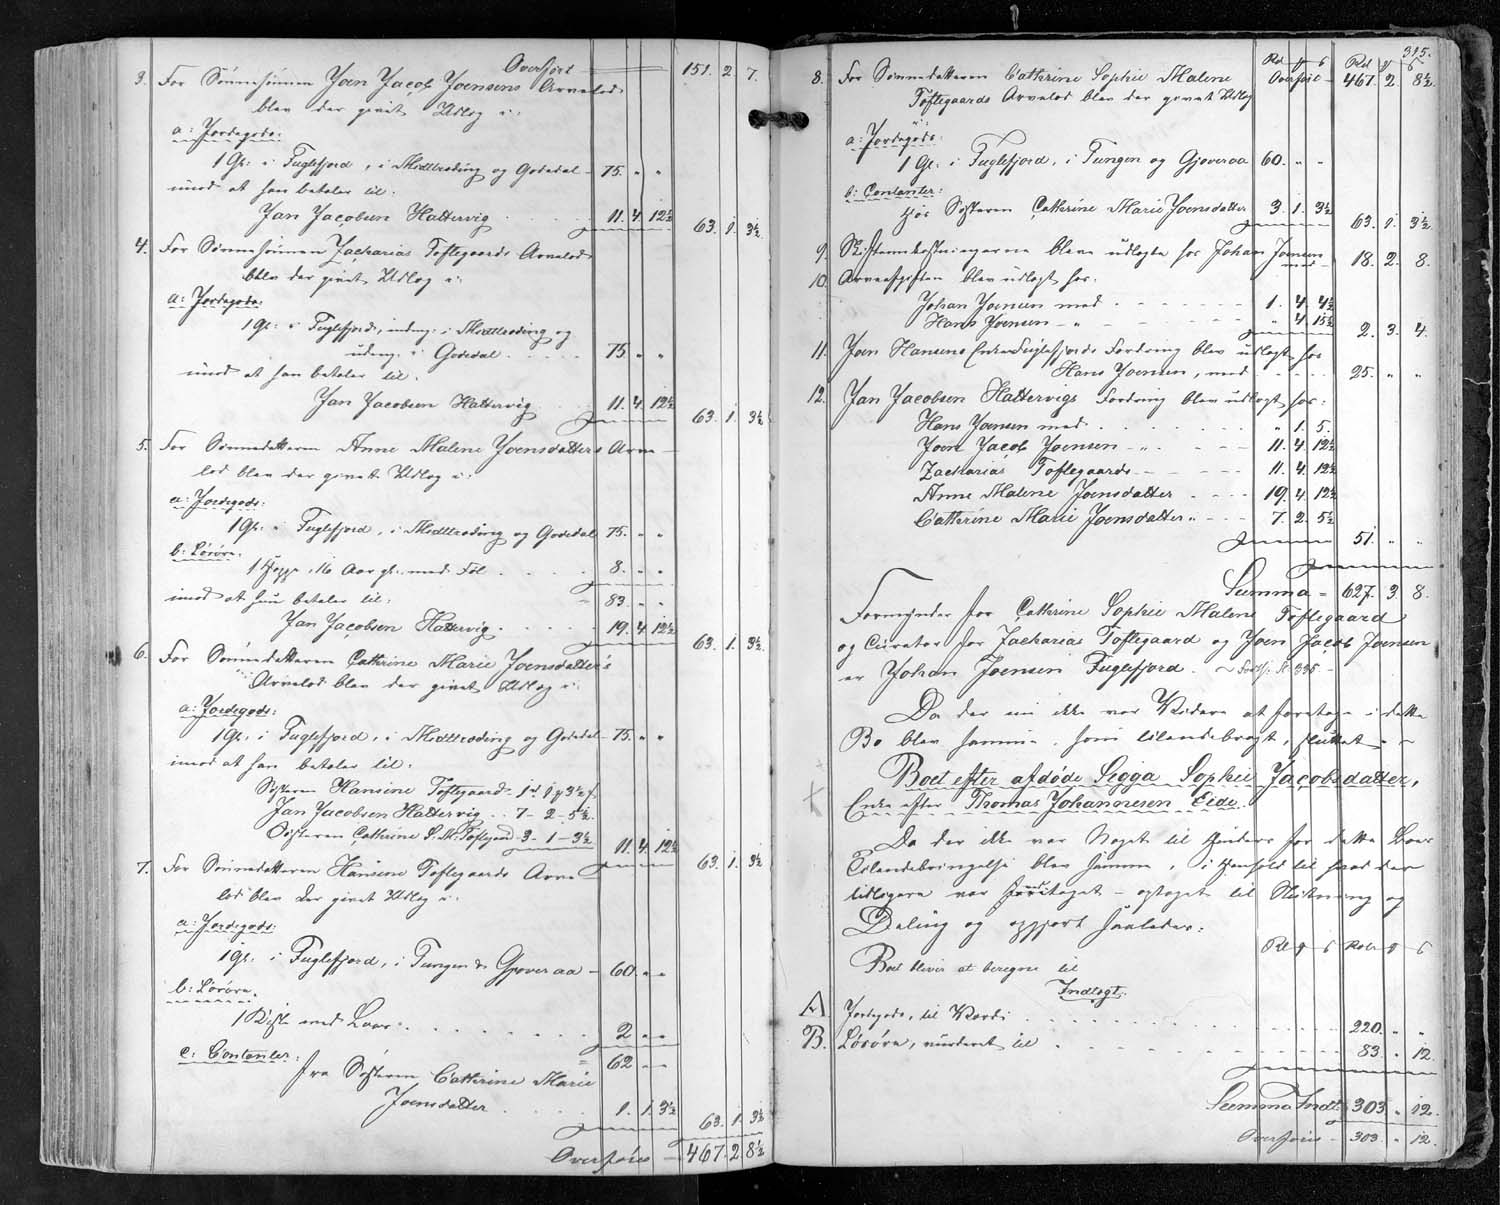 Overført 151. 2. 7.
3. For Sønnesønnen Joen Jacob Joensens Arvelod
blev der givet Udlæg i:
a: Jordegods:
1 Gl: i Fuglefjord, i Midtrøding og Gødedal 75. " "
imod at han betaler til:
Jan Jacobsen Hattervig 11. 4. 12½ 63. 1. 3½
4. For Sønnesønnen Zacharias Toftegaards Arvelod
blev der givet Udlæg i:
a: Jordegods:
1 Gl: i Fuglefjord, indeng: i Midtrøding og
udeng. i Gødedal 75 " "
imod at han betaler til.
Jan Jacobsen Hattervig 11. 4. 12½ 63. 1. 3½
5. For Sønnedatteren Anne Malene Joensdatters Arve-
lod blev der givet Udlæg i:
a: Jordegods:
1 Gl: i Fuglefjord, i Midtrøding og Gødedal 75. " "
b: Løsøre.
1 Hoppe, 16 Aar gl. med Føl 8. " "
imod at hun betaler til: 83. " "
Jan Jacobsen Hattervig 19. 4. 12½ 63. 1. 3½
6. For Sønnedatteren Cathrine Marie Joensdatter's
Arvelod blev der givet Udlæg i:
a: Jordegods:
1 Gl: i Fuglefjord, i Midtrøding og Gødedal 75. " "
imod at han betaler til.
Søsteren Hansine Toftegaard 1 rd 1 ɥ 3½ ß
Jan Jacobsen Hattervig 7 - 2 - 5½
Søsteren Cathrine S. M. Toftegaard 3 - 1 - 3½ 11. 4. 12½ 63. 1. 3½
7. For Sønnedatteren Hansine Toftegaards Arve-
lod blev der givet Udlæg i:
a: Jordegods:
1 Gl: i Fuglefjord, i Tungen & Gjoveraa 60. " "
b: Løsøre.
1 Kiste med Laas 2 " "
c: Contanter: = 62 " "
fra Søsteren Cathrine Marie
Joensdatter 1. 1. 3½ 63. 1. 3½
Overføres 467. 2 8½
315.
Rd ɥ ß Rd ɥ ß
8. For Sønnedatteren Cathrine Sophie Malene Overført 467. 2. 8½
Toftegaards Arvelod blev der givet Udlæg
i:
a: Jordegods:
1 Gl: i Fuglefjord, i Tungen og Gjoveraa 60. " "
b: Contanter:
hos Søsteren Cathrine Marie Joensdatter 3. 1. 3½ 63. 1. 3½
9. Skifteomkostningerne bleve udlagte hos Johan Joensen
med 18. 2. 8.
10. Arveafgiften blev udlagt hos:
Johan Joensen med 1. 4. 4½
Hans Joensen - " " 4. 15½ 2. 3. 4.
11. Joen Hansens Enke Fuglefjords Fordring blev udlagt hos
Hans Joensen, med 25. " "
12. Jan Jacobsen Hattervigs Fordring blev udlagt hos:
Hans Joensen med " 1. 5.
Joen Jacob Joensen " 11. 4. 12½
Zacharias Toftegaards 11. 4. 12½
Anne Malene Joensdatter 19. 4. 12½
Cathrine Marie Joensdatter " 7. 2. 5½
51. " "
Summa = 627. 3 8.
Formynder for Cathrine Sophie Malene Toftegaard
og Curator for Zacharias Toftegaard og Joen Jacob Joensen
er Johan Joensen Fuglefjord. - Forts: S: 335 -
Da der nu ikke var Videre at foretage i dette
Bo blev samme, som tilendebragt, sluttet.
Boet efter afdøde Segga Sophie Jacobsdatter,
Enke efter Thomas Johannesen Eide.
Da der ikke var Noget til Hinder for dette Boes
Tilendebringelse blev samme, i Henhold til hvad der
tidligere var foretaget - optaget til Slutning og
Deling og opgjort saaledes:
Rd ɥ ß Rd ɥ ß
Boet bliver at beregne til
Indtægt:
A. Jordegods, til Værdi 220. " "
B. Løsøre, vurderet til 83. " 12.
Summa Indt: 303 " 12.
Overføres - 303. " 12.